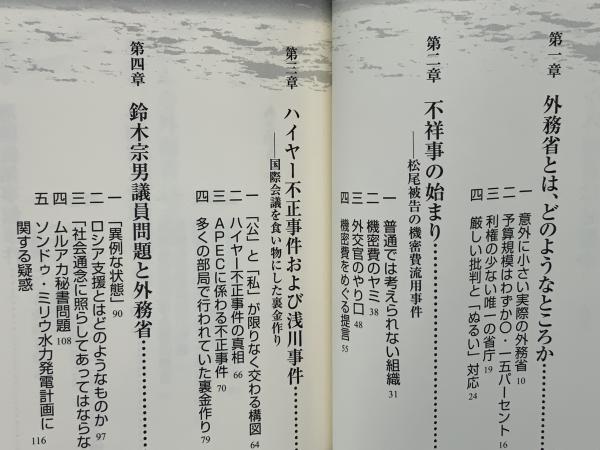 第一章 外務省とは、どのようなところか…………
一 意外に小さい実際の外務省 10
二 予算規模はわずか〇・一五パーセント 16
三 利権の少ない唯一の省庁 19
四 厳しい批判と「ぬるい」対応 24
第二章 不祥事の始まり…………
――松尾被告の機密費流用事件
一 普通では考えられない組織 31
二 機密費のヤミ 38
三 外交官のやり口 48
四 機密費をめぐる提言 55
第三章 ハイヤー不正事件および浅川事件…………
――国際会議を食い物にした裏金作り
一 「公」と「私」が限りなく交わる構図 64
二 ハイヤー不正事件の真相 66
三 APECに係わる不正事件 70
四 多くの部局で行われていた裏金作り 79
第四章 鈴木宗男議員問題と外務省…………
一 「異例な状態」 90
二 ロシア支援とはどのようなものか 97
三 「社会通念に照らしてあってはならな
四 ムルアカ秘書問題 108
五 ソンドゥ・ミリウ水力発電計画に
関する疑惑 116